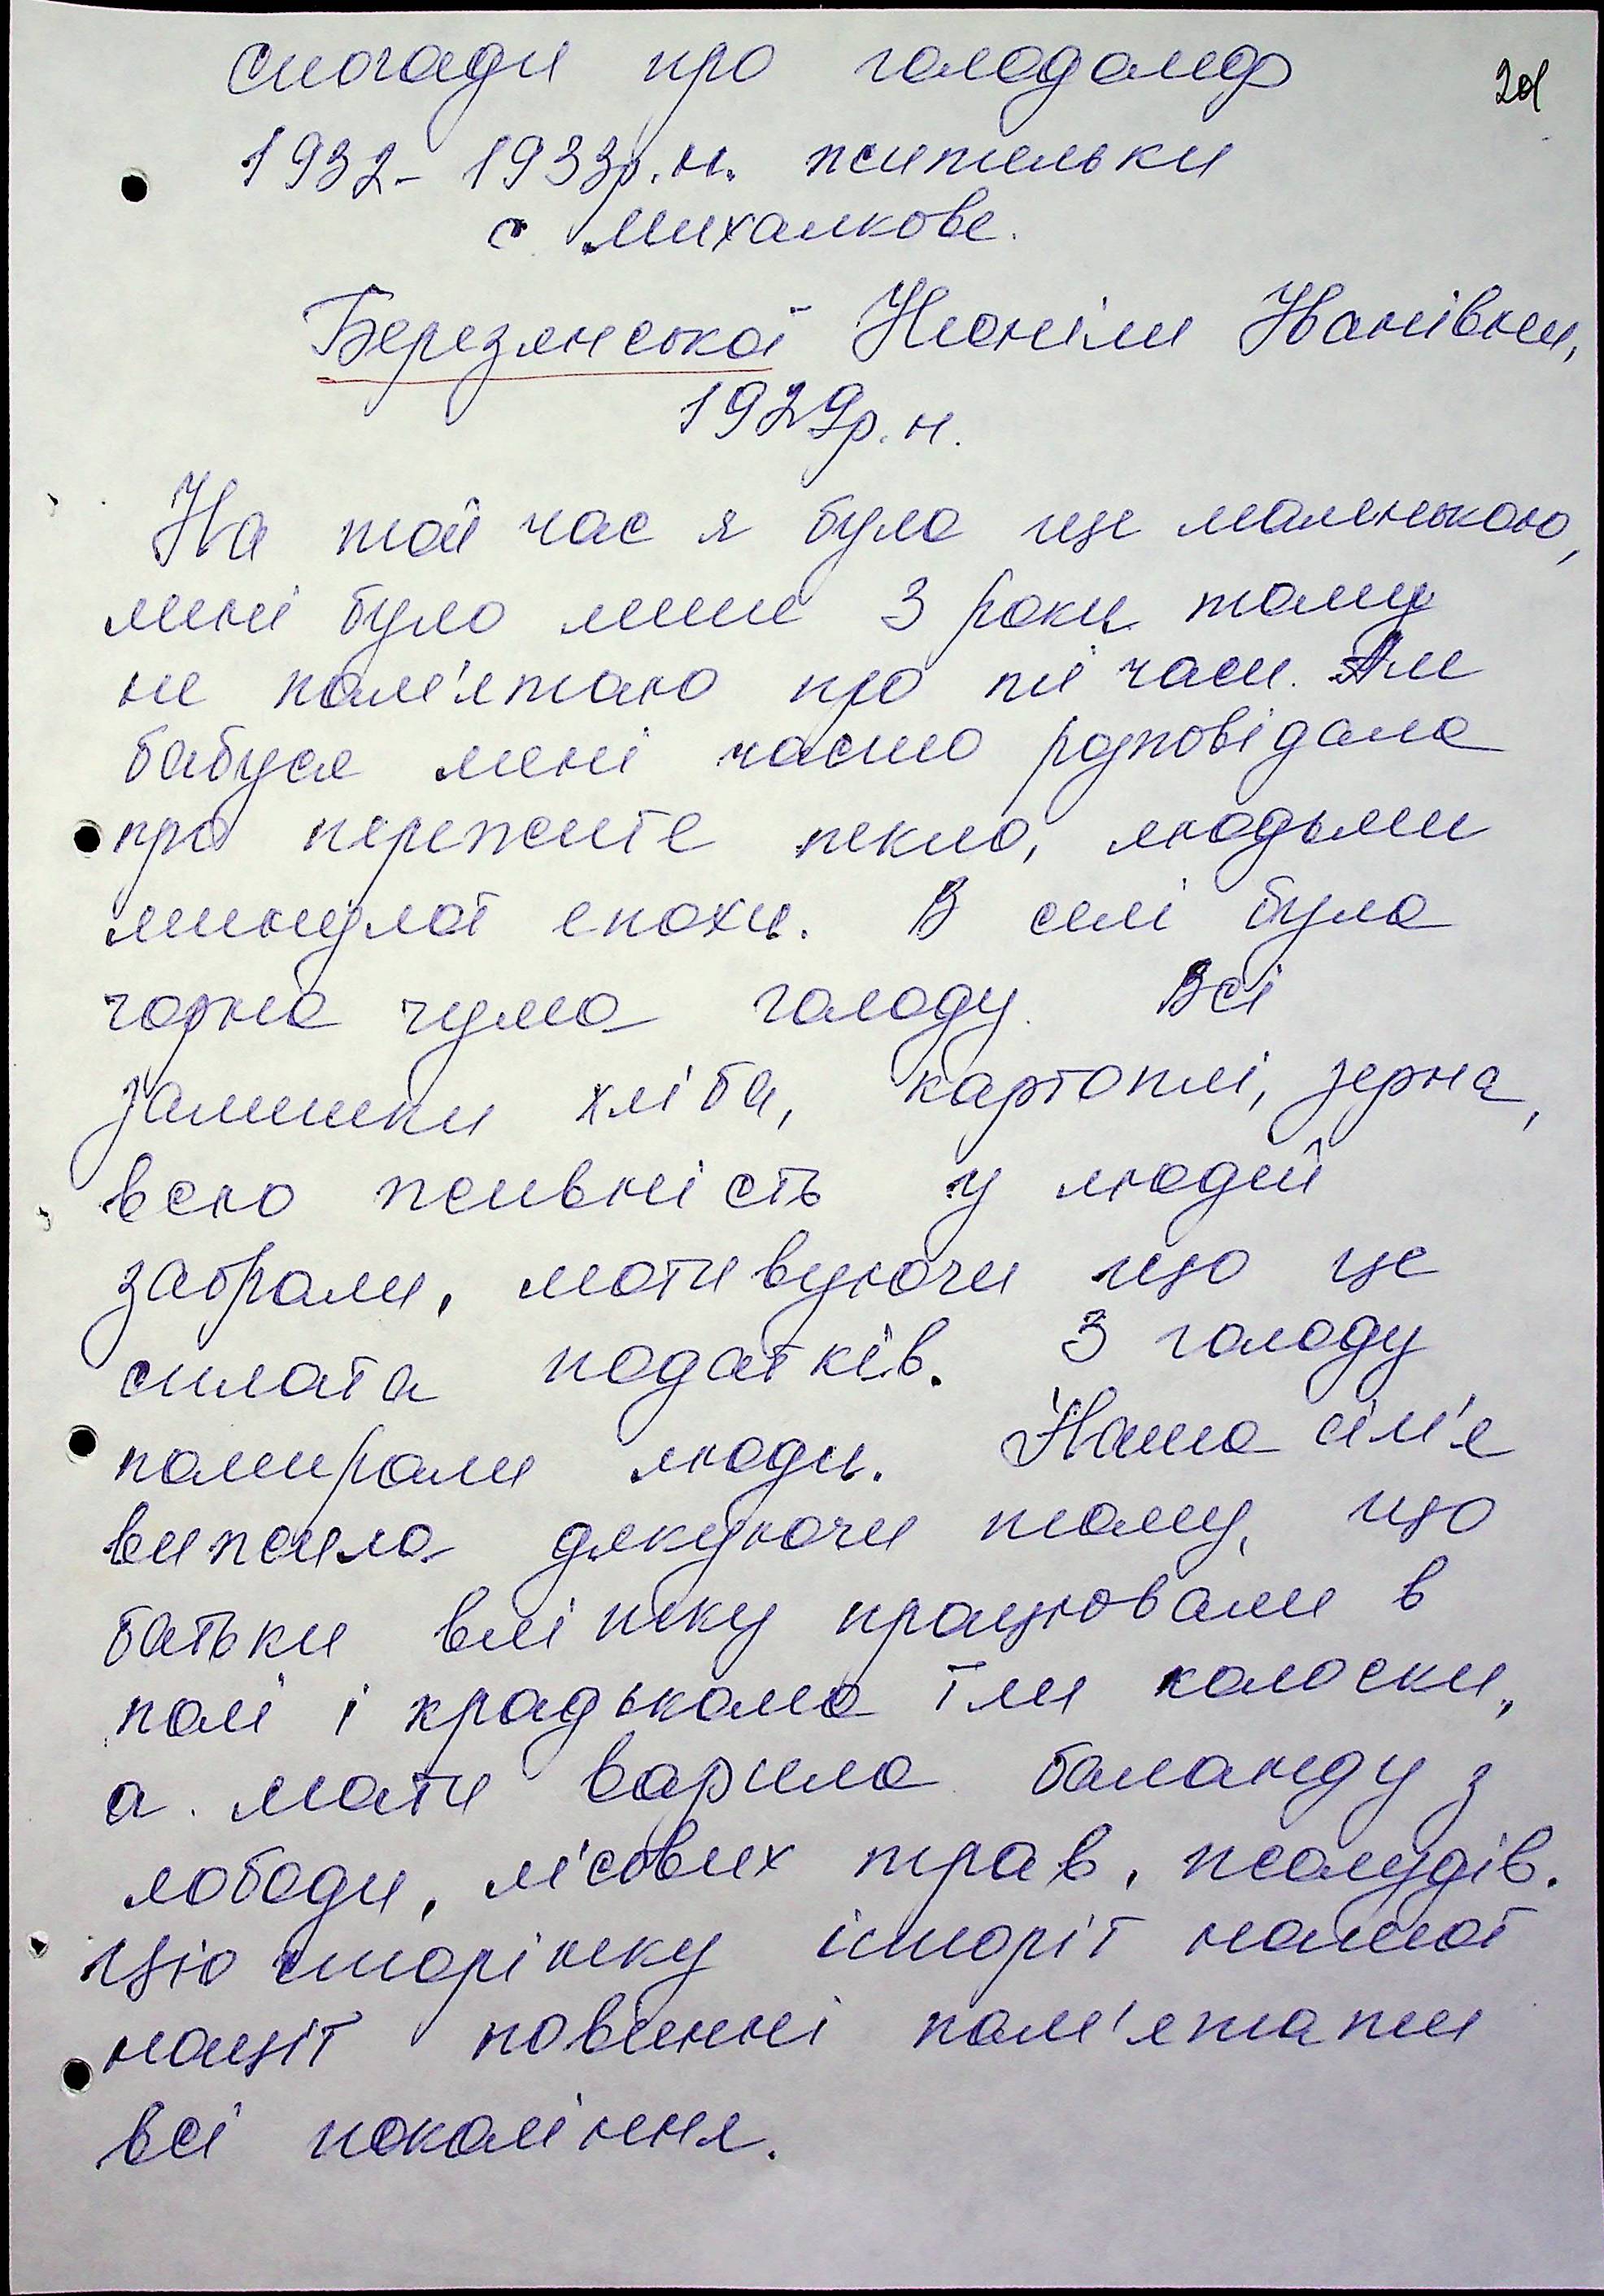 спогади про голодомор
201
1932-1933р.н. жительки
с. Михалкове.
Березянської Неоніли Іванівни,
1929р.н.
На той час я була ще маленькою,
мені було лише 3 роки тому
не пам'ятаю про ті часи. Але
бабуся мені часто розповідала
про пережите пекло, людьми
минулої епохи. В селі була
чорна чума голоду. Всі
залишки хліба, картоплі, зерна,
всю живність у людей
забрали, мотивуючи що це
сплата податків. З голоду
помирали люди. Наша сім'я
вижила дякуючи тому, що
батьки влітку працювали в
полі і крадькома їли колоски,
а мати варила баланду з
лободи, лісових трав, жолудів.
Цю сторінку історії нашої
нації повинні пам'ятати
всі покоління.